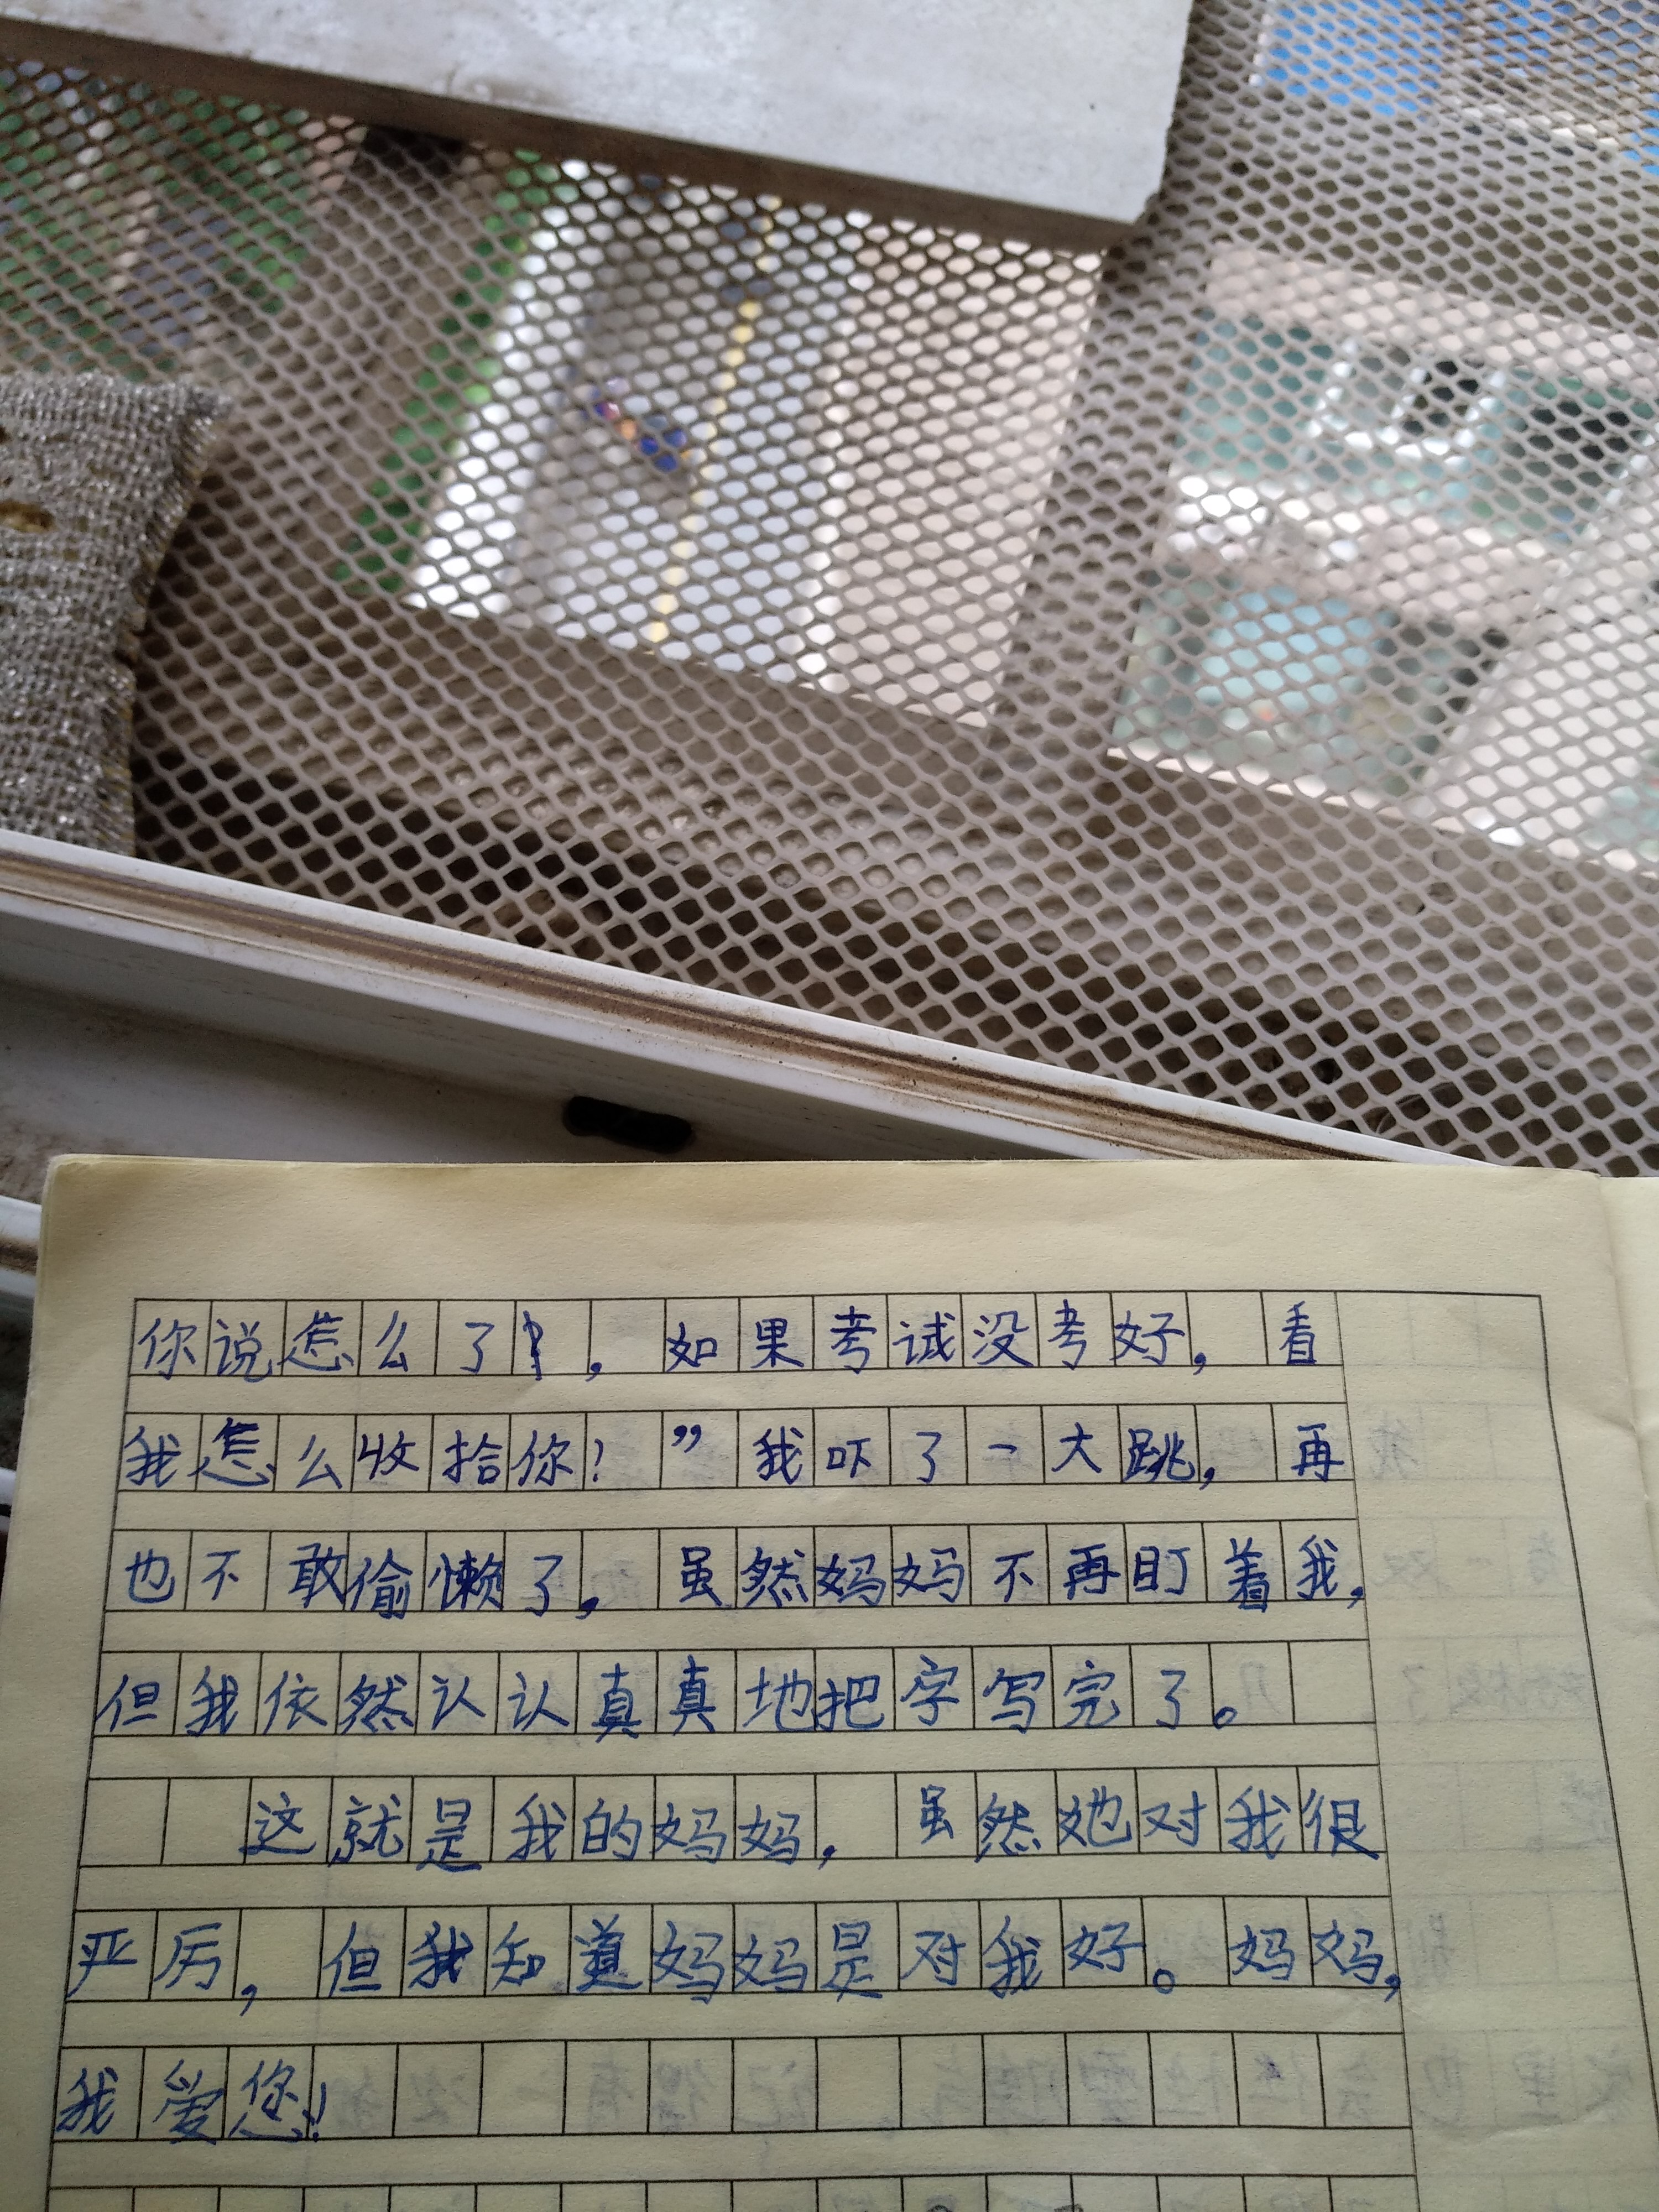 你说怎么了，如果考试没考好，看
我怎么收拾你！”我吓了一大跳，再
也不敢偷懒了，虽然妈妈不再盯着我，
但我依然认认真真地把字写完了。
这就是我的妈妈，虽然她对我很
严厉，但我知道妈妈是对我好。妈妈，
我爱您！